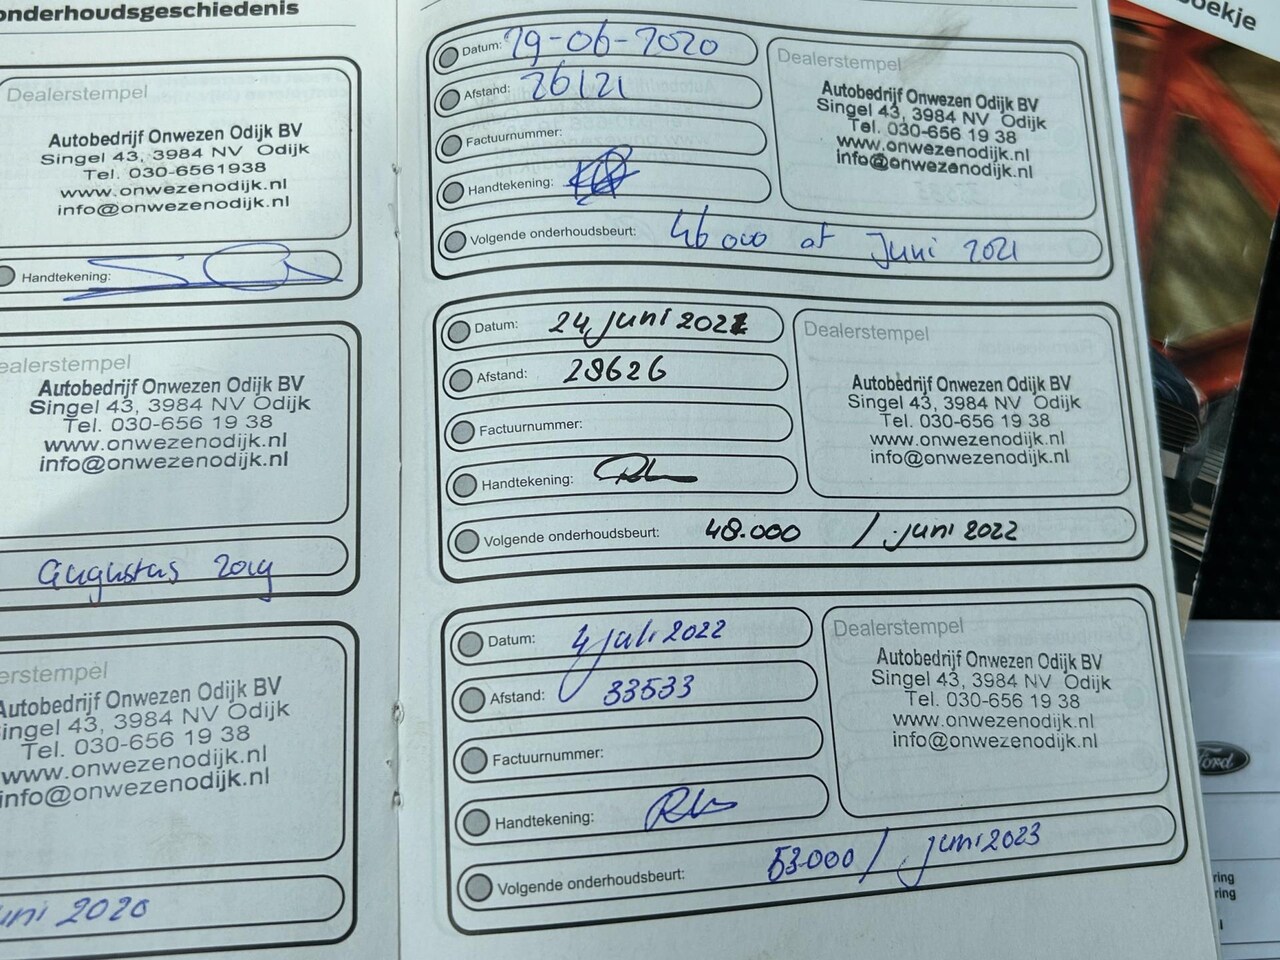 onderhoudsgeschiedenis
Dealerstempel
Autobedrijf Onwezen Odijk BV
Singel 43, 3984 NV Odijk
Tel. 030-6561938
www.onwezenodijk.nl
info@onwezenodijk.nl
Handtekening:
ealerstempel
Autobedrijf Onwezen Odijk BV
Singel 43, 3984 NV Odijk
Tel. 030-656 19 38
www.onwezenodijk.nl
info@onwezenodijk.nl
augustus 2019
erstempel
Autobedrijf Onwezen Odijk BV
ingel 43, 3984 NV Odijk
Tel. 030-656 19 38
www.onwezenodijk.nl
info@onwezenodijk.nl
uni 2020
Datum: 29-06-2020
Afstand: 26121
Factuurnummer:
Handtekening:
Volgende onderhoudsbeurt: 46000 of Juni 2021
Dealerstempel
Autobedrijf Onwezen Odijk BV
Singel 43, 3984 NV Odijk
Tel. 030-656 19 38
www.onwezenodijk.nl
info@onwezenodijk.nl
Datum: 24 juni 2021
Afstand: 28626
Factuurnummer:
Handtekening:
Volgende onderhoudsbeurt: 48.000 / juni 2022
Dealerstempel
Autobedrijf Onwezen Odijk BV
Singel 43, 3984 NV Odijk
Tel. 030-656 19 38
www.onwezenodijk.nl
info@onwezenodijk.nl
Datum: 4 juli 2022
Afstand: 33533
Factuurnummer:
Handtekening:
Volgende onderhoudsbeurt: 53.000 / juni 2023
Dealerstempel
Autobedrijf Onwezen Odijk BV
Singel 43, 3984 NV Odijk
Tel. 030-656 19 38
www.onwezenodijk.nl
info@onwezenodijk.nl
oekje
Ford
ring
ring